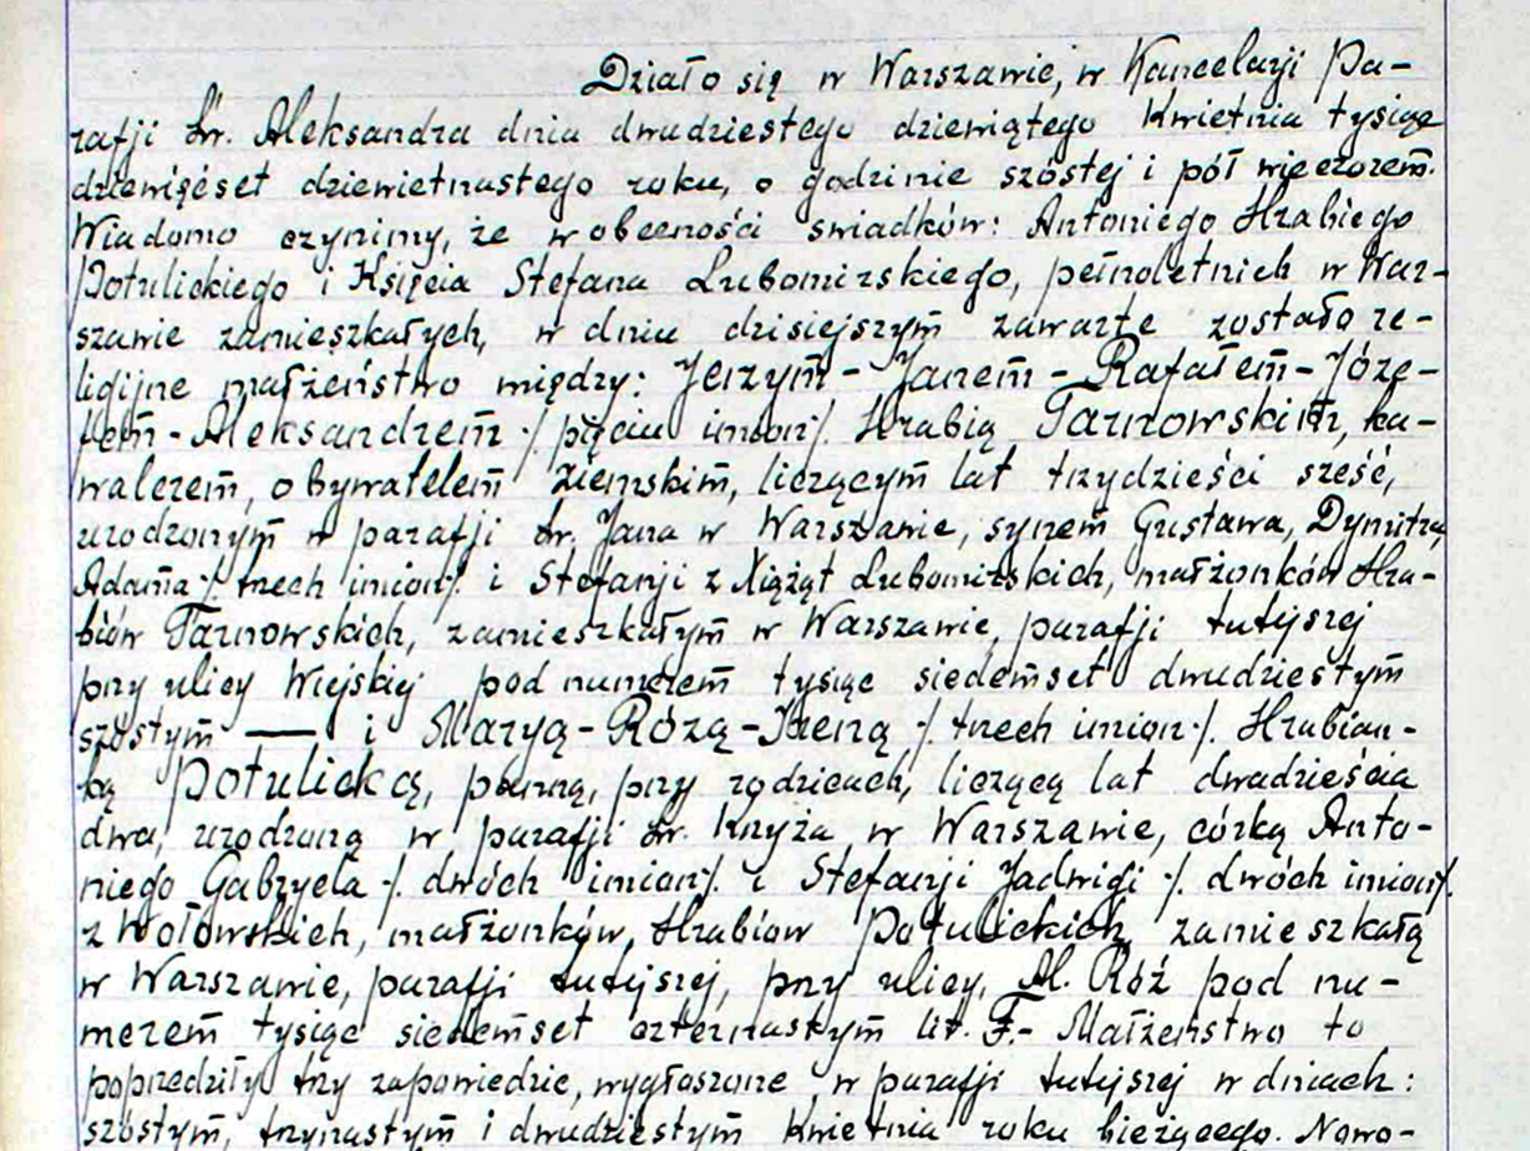 Działo się w Warszawie, w Kancelarji Pa-
rafji Św. Aleksandra dnia dwudziestego dziewiątego Kwietnia tysiąc
dziewięćset dziewiętnastego roku, o godzinie szóstej i pół wieczorem.
Wiadomo czynimy, że w obecności swiadków: Antoniego Hrabiego
Potulickiego i Księcia Stefana Lubomirskiego, pełnoletnich w War-
szawie zamieszkałych, w dniu dzisiejszym zawarte zostało re-
ligijne małżeństwo między: Jerzym - Janem - Rafałem - Józe-
fem - Aleksandrem ·/. pięciu imion ·/. Hrabią Tarnowskim, ka-
walerem, obywatelem ziemskim, liczącym lat trzydzieści sześć,
urodzonym w parafji św. Jana w Warszawie, synem Gustawa, Dymitra,
Adama ·/. trzech imion ·/. i Stefanji z Xiążąt Lubomirskich, małżonków Hra-
biów Tarnowskich, zamieszkałym w Warszawie, parafji tutejszej
przy ulicy Wiejskiej pod numerem tysiąc siedemset dwudziestym
szóstym — i Maryą - Różą - Ireną ·/. trzech imion ·/. Hrabian-
ką Potulicką, panną, przy rodzicach, liczącą lat dwadzieścia
dwa, urodzoną w parafji św. Krzyża w Warszawie, córką Anto-
niego Gabryela ·/. dwóch imion ·/. i Stefanji Jadwigi ·/. dwóch imion ·/.
z Wołowskich, małżonków, Hrabiow Potulickich, zamieszkałą
w Warszawie, parafji tutejszej, przy ulicy, Al. Róż pod nu-
merem tysiąc siedemset czternastym lit. F. - Małżeństwo to
poprzedziły trzy zapowiedzie, wygłoszone w parafji tutejszej w dniach:
szóstym, trzynastym i dwudziestym Kwietnia roku bieżącego. Nowo-